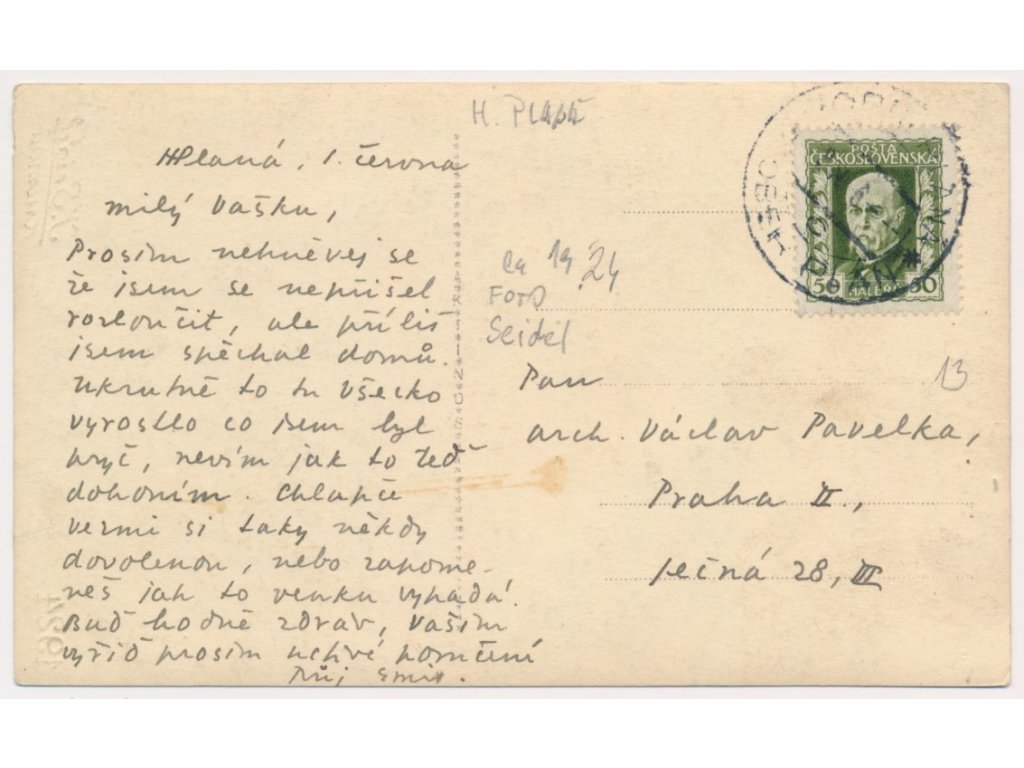 H. Planá
HPlaná, 1. června
milý Vašku,
Prosím nehněvej se
že jsem se nepřišel
rozloučit, ale příliš
jsem spěchal domů.
Ukrutně to tu všecko
vyrostlo co jsem byl
pryč, nevím jak to teď
dohoním. Chlapče
vezmi si taky někdy
dovolenou, nebo zapome-
neš jak to venku vypadá.
Buď hodně zdráv, Vašim
vyřiď prosím uctivé poručení
Tvůj
ca 1924
Foto
Seidel
POŠTA
ČESKOSLOVENSKÁ
50 HALÉŘŮ 50
13
Pan
arch. Václav Pavelka,
Praha II.,
Ječná 28, III